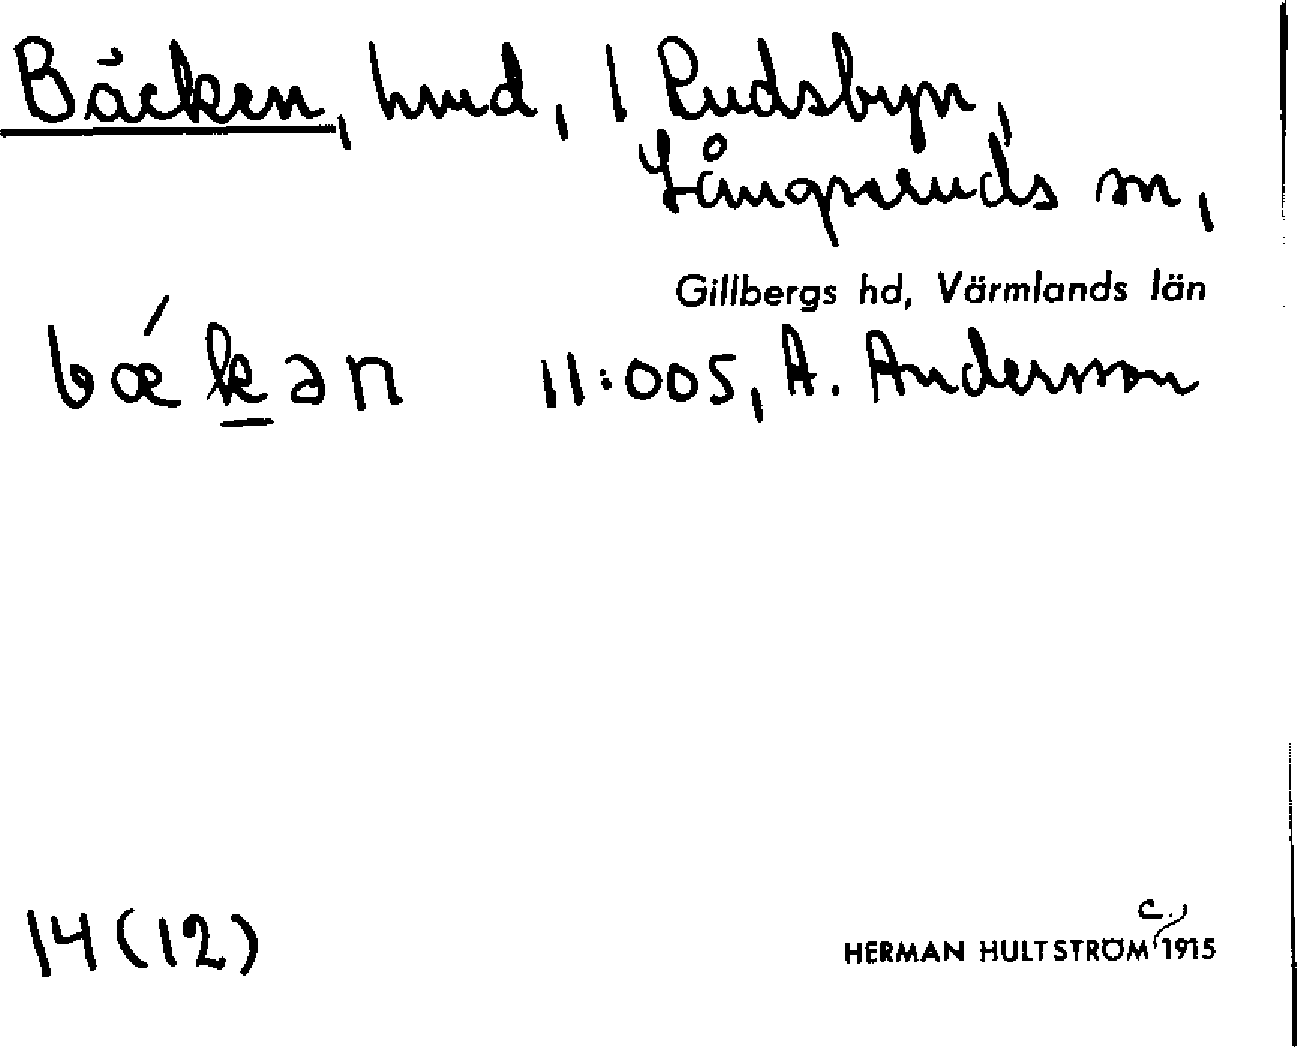 Bäcken, hmd, 1 Rudsbyn,
Långseruds sn,
Gillbergs hd, Värmlands län
bǽk̲ən 11:005, A. Andersson
14(12)
HERMAN HULTSTRÖM c., 1915